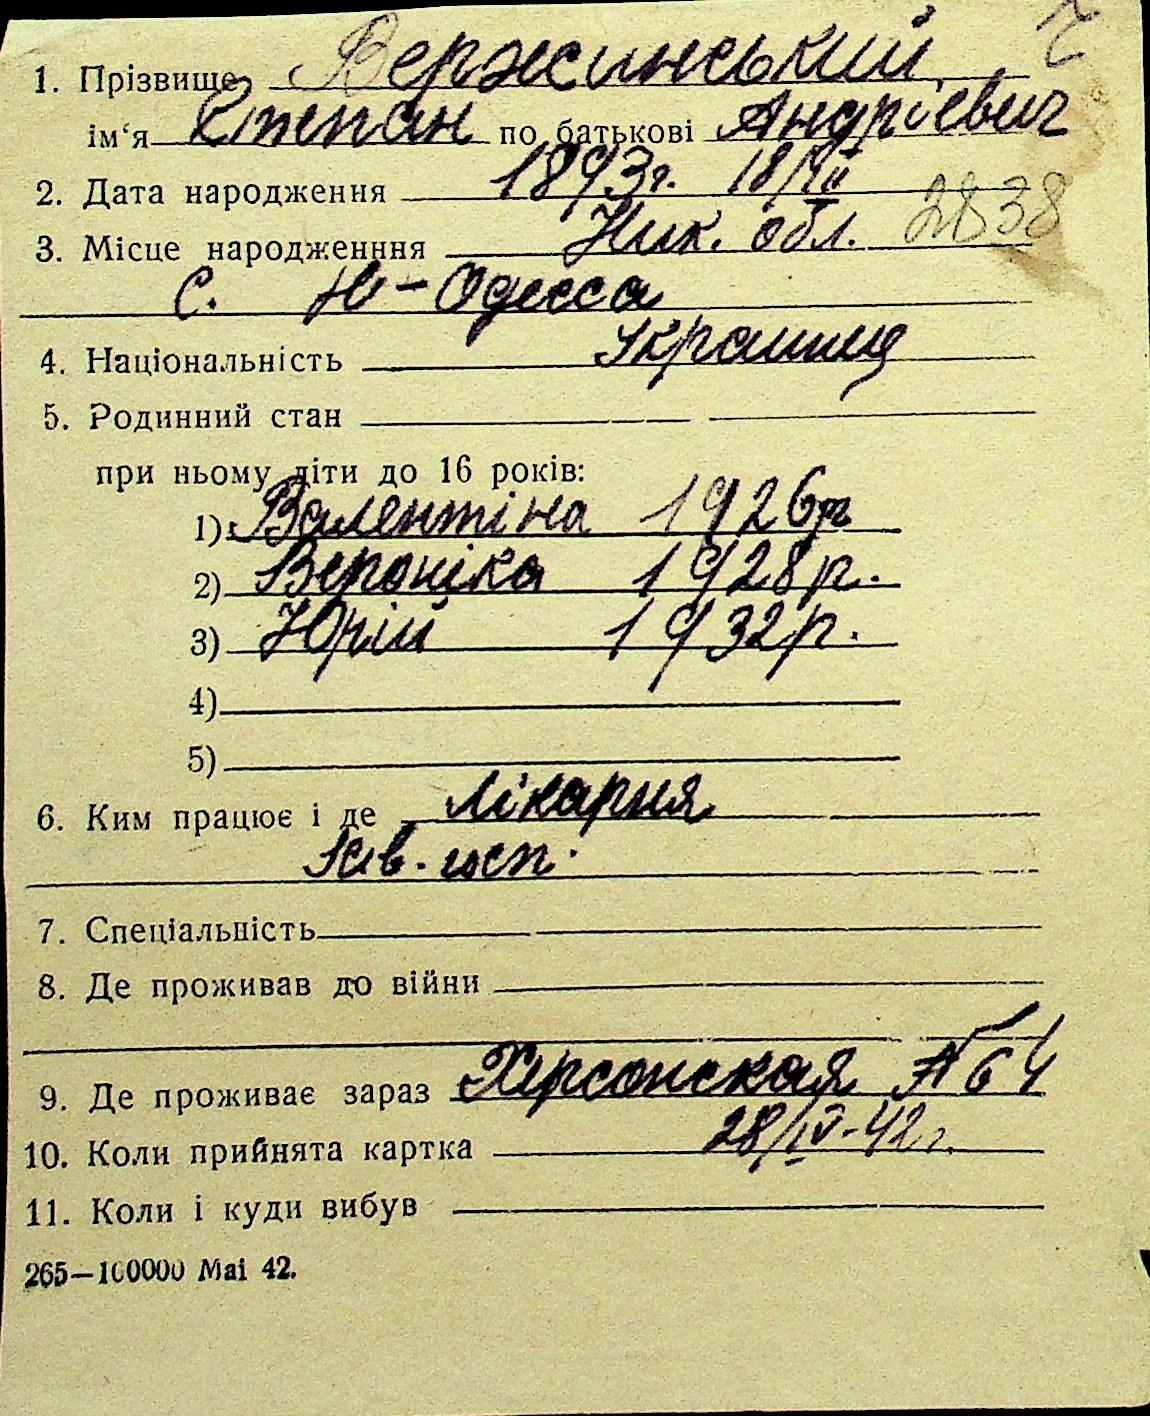 1. Прізвище Вержинський
ім‘я Степан по батькові Андрієвич
2. Дата народження 1893г. 18/VII
3. Місце народженння Ник. обл. 2838
с. Н-Одесса
4. Національність Украинец
5. Родинний стан
при ньому діти до 16 років:
1) Валентіна 1926р
2) Вероніка 1928р.
3) Юрій 1932р.
4)
5)
6. Ким працює і де Лікарня
госп.
7. Спеціальність
8. Де проживав до війни
9. Де проживає зараз Херсонская № 64
10. Коли прийнята картка 28/IV-42г.
11. Коли і куди вибув
265—100000 Mai 42.